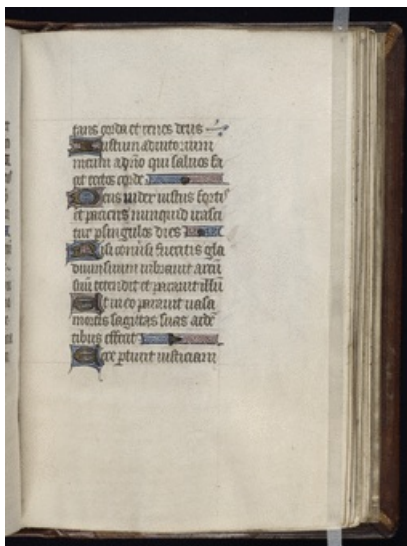 tans corda et renes deus
Iustum adiutorium
meum a dño qui saluos fa
cit rectos corde.
Deus iudex iustus fortis
et paciens nunquid irasci
tur p singulos dies
Nisi conuersi fueritis gla
dium suum uibrauit arcū
suū tetendit et parauit illū
Et in eo parauit uasa
mortis sagittas suas ardē
tibus effecit
Ecce pturit iusticiam